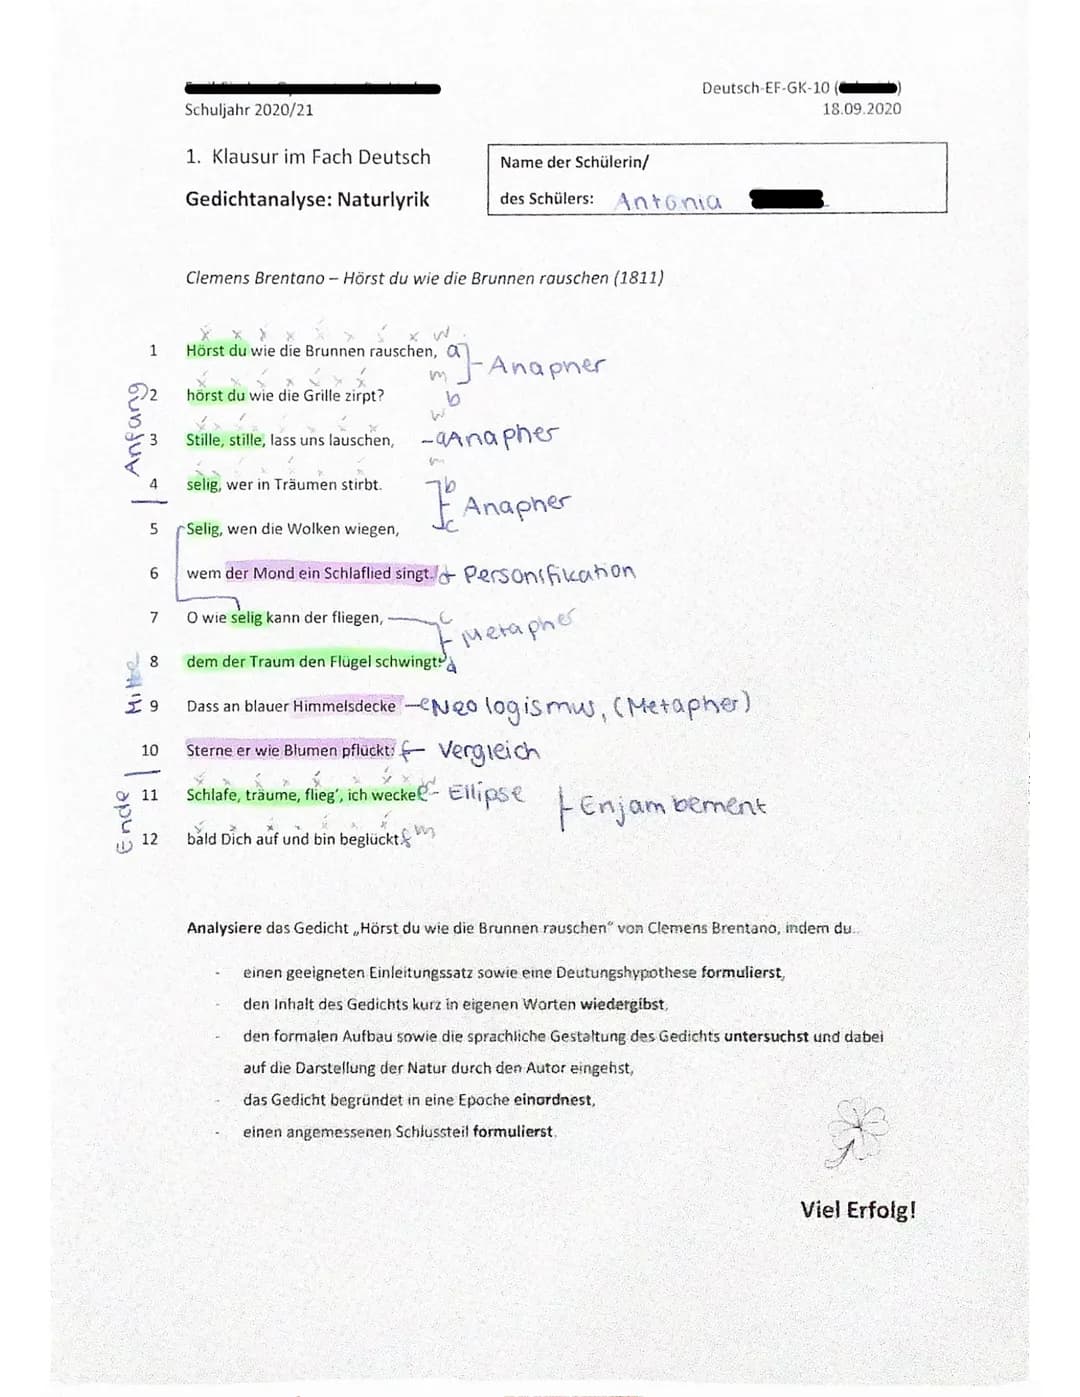 Schuljahr 2020/21
Deutsch-EF-GK-10 ( )
18.09.2020
1. Klausur im Fach Deutsch
Gedichtanalyse: Naturlyrik
Name der Schülerin/
des Schülers: Antonia
Clemens Brentano – Hörst du wie die Brunnen rauschen (1811)
Anfang
1 Hörst du wie die Brunnen rauschen, a w Anapher
2 hörst du wie die Grille zirpt? m b
3 Stille, stille, lass uns lauschen, w - a Anapher
4 selig, wer in Träumen stirbt. m b Anapher
5 Selig, wen die Wolken wiegen, c
6 wem der Mond ein Schlaflied singt. d Personifikation
7 O wie selig kann der fliegen, c Metapher
8 dem der Traum den Flügel schwingt: d
Mitte
9 Dass an blauer Himmelsdecke e Neologismus, (Metapher)
10 Sterne er wie Blumen pflückt: f Vergleich
Ende
11 Schlafe, träume, flieg', ich wecke e - Ellipse Enjambement
12 bald Dich auf und bin beglückt. f m
Analysiere das Gedicht „Hörst du wie die Brunnen rauschen“ von Clemens Brentano, indem du..
- einen geeigneten Einleitungssatz sowie eine Deutungshypothese formulierst,
- den Inhalt des Gedichts kurz in eigenen Worten wiedergibst,
- den formalen Aufbau sowie die sprachliche Gestaltung des Gedichts untersuchst und dabei
auf die Darstellung der Natur durch den Autor eingehst,
- das Gedicht begründet in eine Epoche einordnest,
- einen angemessenen Schlussteil formulierst.
Viel Erfolg!